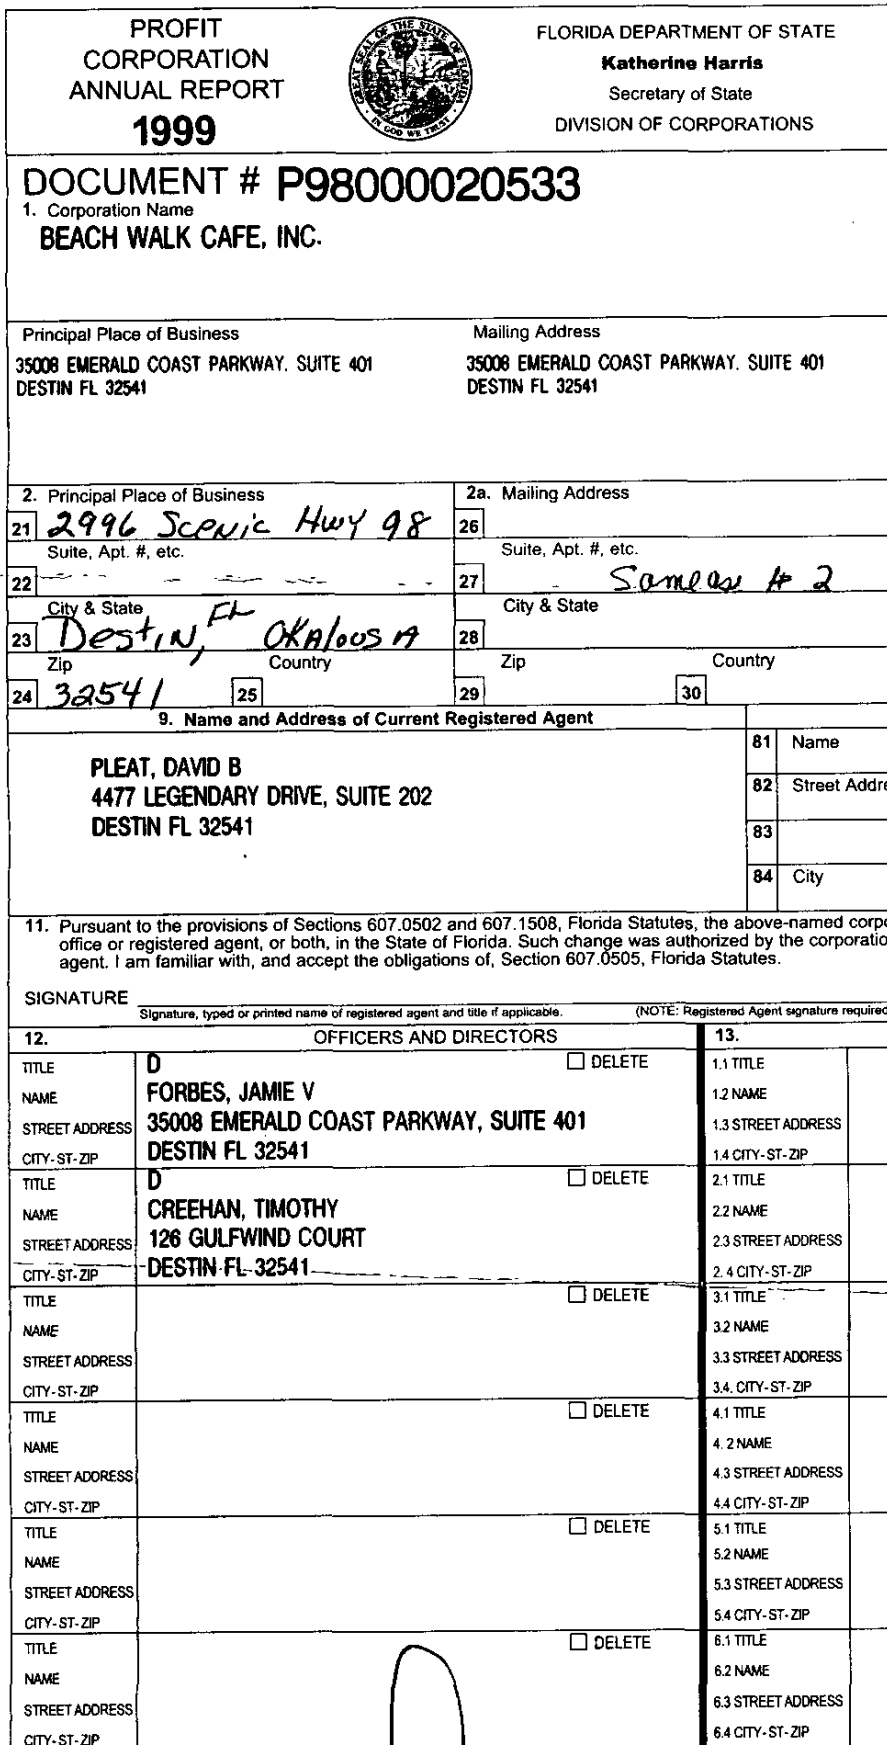 PROFIT
CORPORATION
ANNUAL REPORT
1999
GREAT SEAL OF THE STATE OF FLORIDA
IN GOD WE TRUST
FLORIDA DEPARTMENT OF STATE
Katherine Harris
Secretary of State
DIVISION OF CORPORATIONS
DOCUMENT # P98000020533
1. Corporation Name
BEACH WALK CAFE, INC.
Principal Place of Business
35008 EMERALD COAST PARKWAY. SUITE 401
DESTIN FL 32541
Mailing Address
35008 EMERALD COAST PARKWAY. SUITE 401
DESTIN FL 32541
2. Principal Place of Business
21 2996 Scenic Hwy 98
Suite, Apt. #, etc.
22
City & State
23 Destin, FL OKAloosA
Zip Country
24 32541 25
2a. Mailing Address
26
Suite, Apt. #, etc.
27 Same as # 2
City & State
28
Zip Country
29 30
9. Name and Address of Current Registered Agent
PLEAT, DAVID B
4477 LEGENDARY DRIVE, SUITE 202
DESTIN FL 32541
81 Name
82 Street Addre
83
84 City
11. Pursuant to the provisions of Sections 607.0502 and 607.1508, Florida Statutes, the above-named corpo
office or registered agent, or both, in the State of Florida. Such change was authorized by the corporatio
agent. I am familiar with, and accept the obligations of, Section 607.0505, Florida Statutes.
SIGNATURE
Signature, typed or printed name of registered agent and title if applicable. (NOTE: Registered Agent signature required
12. OFFICERS AND DIRECTORS 13.
TITLE D DELETE 1.1 TITLE
NAME FORBES, JAMIE V 1.2 NAME
STREET ADDRESS 35008 EMERALD COAST PARKWAY, SUITE 401 1.3 STREET ADDRESS
CITY-ST-ZIP DESTIN FL 32541 1.4 CITY-ST-ZIP
TITLE D DELETE 2.1 TITLE
NAME CREEHAN, TIMOTHY 2.2 NAME
STREET ADDRESS 126 GULFWIND COURT 2.3 STREET ADDRESS
CITY-ST-ZIP DESTIN FL 32541 2.4 CITY-ST-ZIP
TITLE DELETE 3.1 TITLE
NAME 3.2 NAME
STREET ADDRESS 3.3 STREET ADDRESS
CITY-ST-ZIP 3.4. CITY-ST-ZIP
TITLE DELETE 4.1 TITLE
NAME 4.2 NAME
STREET ADDRESS 4.3 STREET ADDRESS
CITY-ST-ZIP 4.4 CITY-ST-ZIP
TITLE DELETE 5.1 TITLE
NAME 5.2 NAME
STREET ADDRESS 5.3 STREET ADDRESS
CITY-ST-ZIP 5.4 CITY-ST-ZIP
TITLE DELETE 6.1 TITLE
NAME 6.2 NAME
STREET ADDRESS 6.3 STREET ADDRESS
CITY-ST-ZIP 6.4 CITY-ST-ZIP